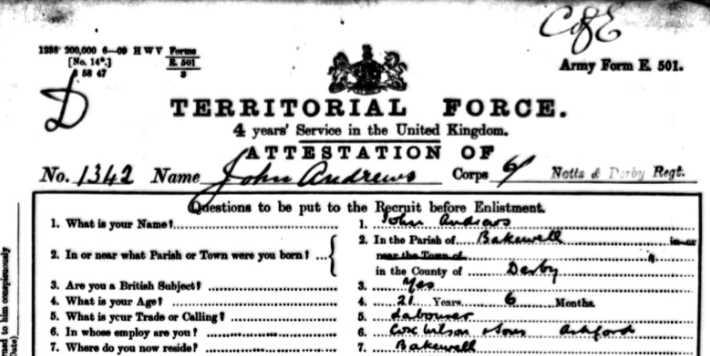 C of E
1238 200,000 6—09 H W V Forms
[No. 14*.] E. 501
6 58 47 3
Army Form E. 501.
D
TERRITORIAL FORCE.
4 years' Service in the United Kingdom.
ATTESTATION OF
No. 1342 Name John Andrews Corps 6/ Notts & Derby Regt.
Questions to be put to the Recruit before Enlistment.
1. What is your Name? 1. John Andrews
2. In or near what Parish or Town were you born? 2. In the Parish of Bakewell in or
near the Town of
in the County of Derby
3. Are you a British Subject? 3. Yes
4. What is your Age? 4. 21 Years 6 Months.
5. What is your Trade or Calling? 5. Labourer
6. In whose employ are you? 6. Wilson Sons Ashford
7. Where do you now reside? 7. Bakewell